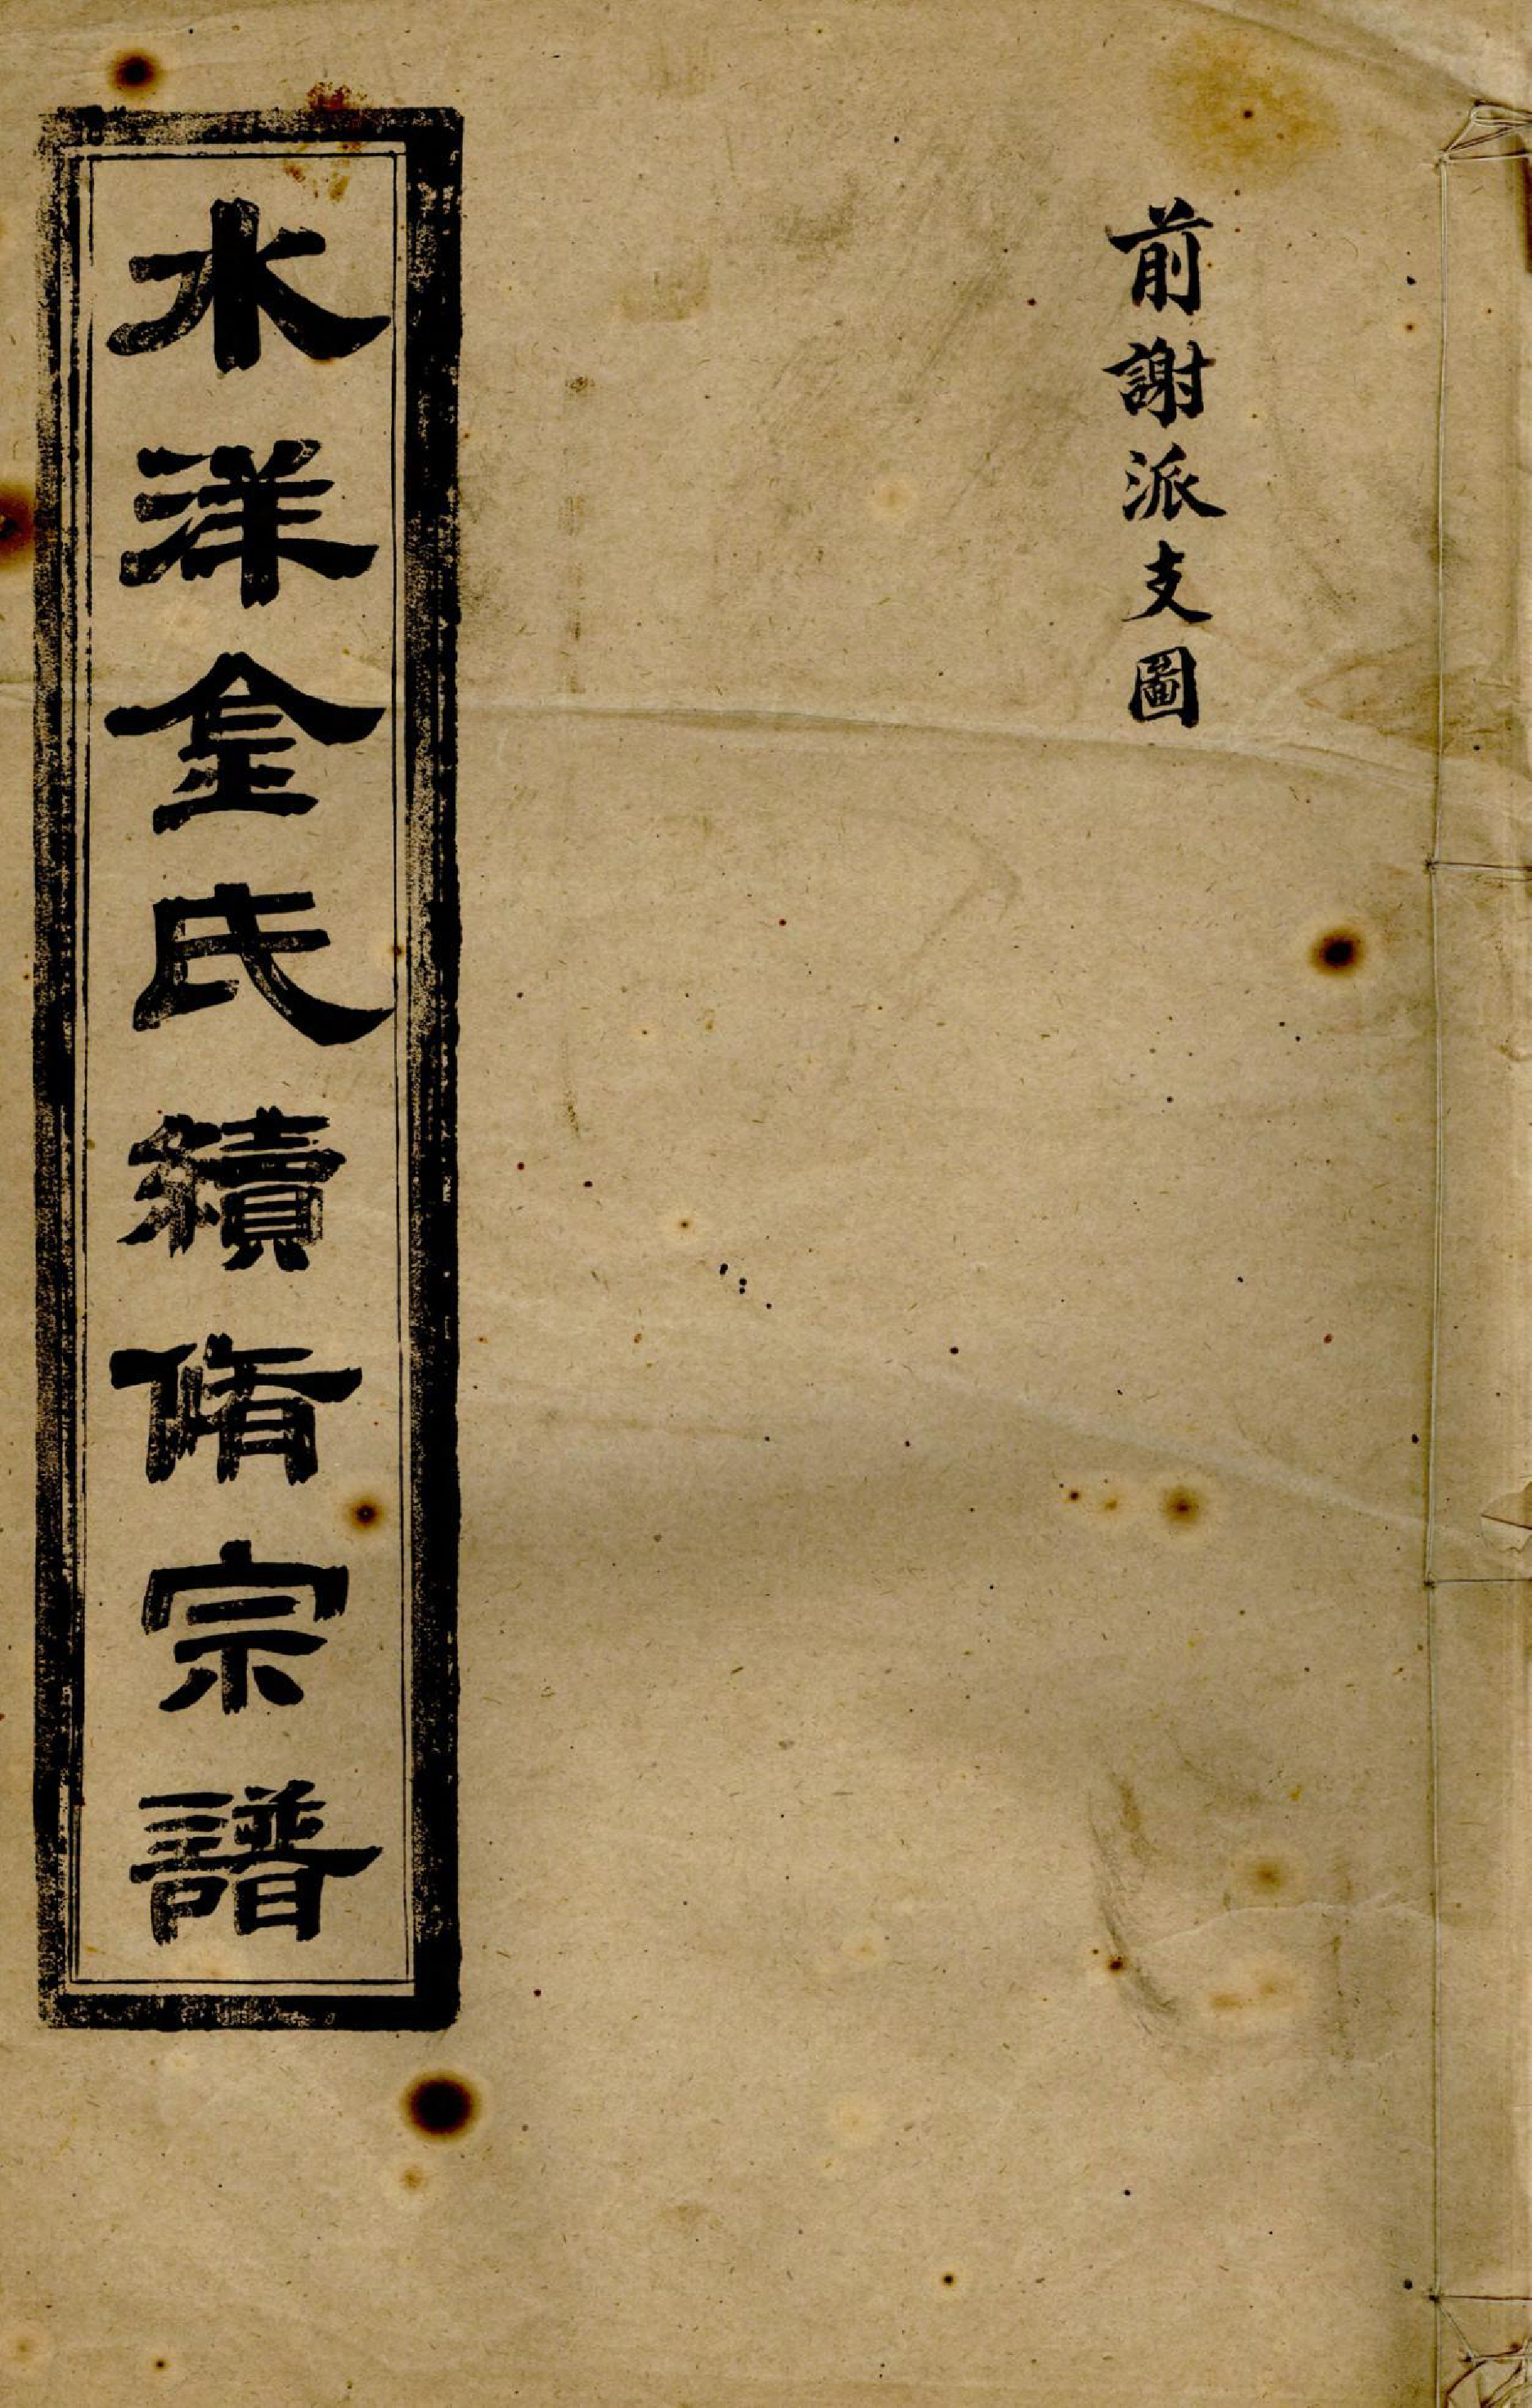 前謝派支圖
水洋金氏續脩宗譜